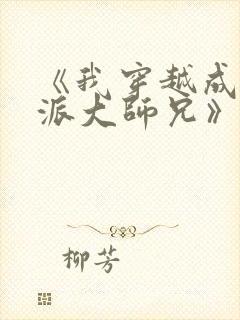 《我穿越成
派大师兄》
柳芳